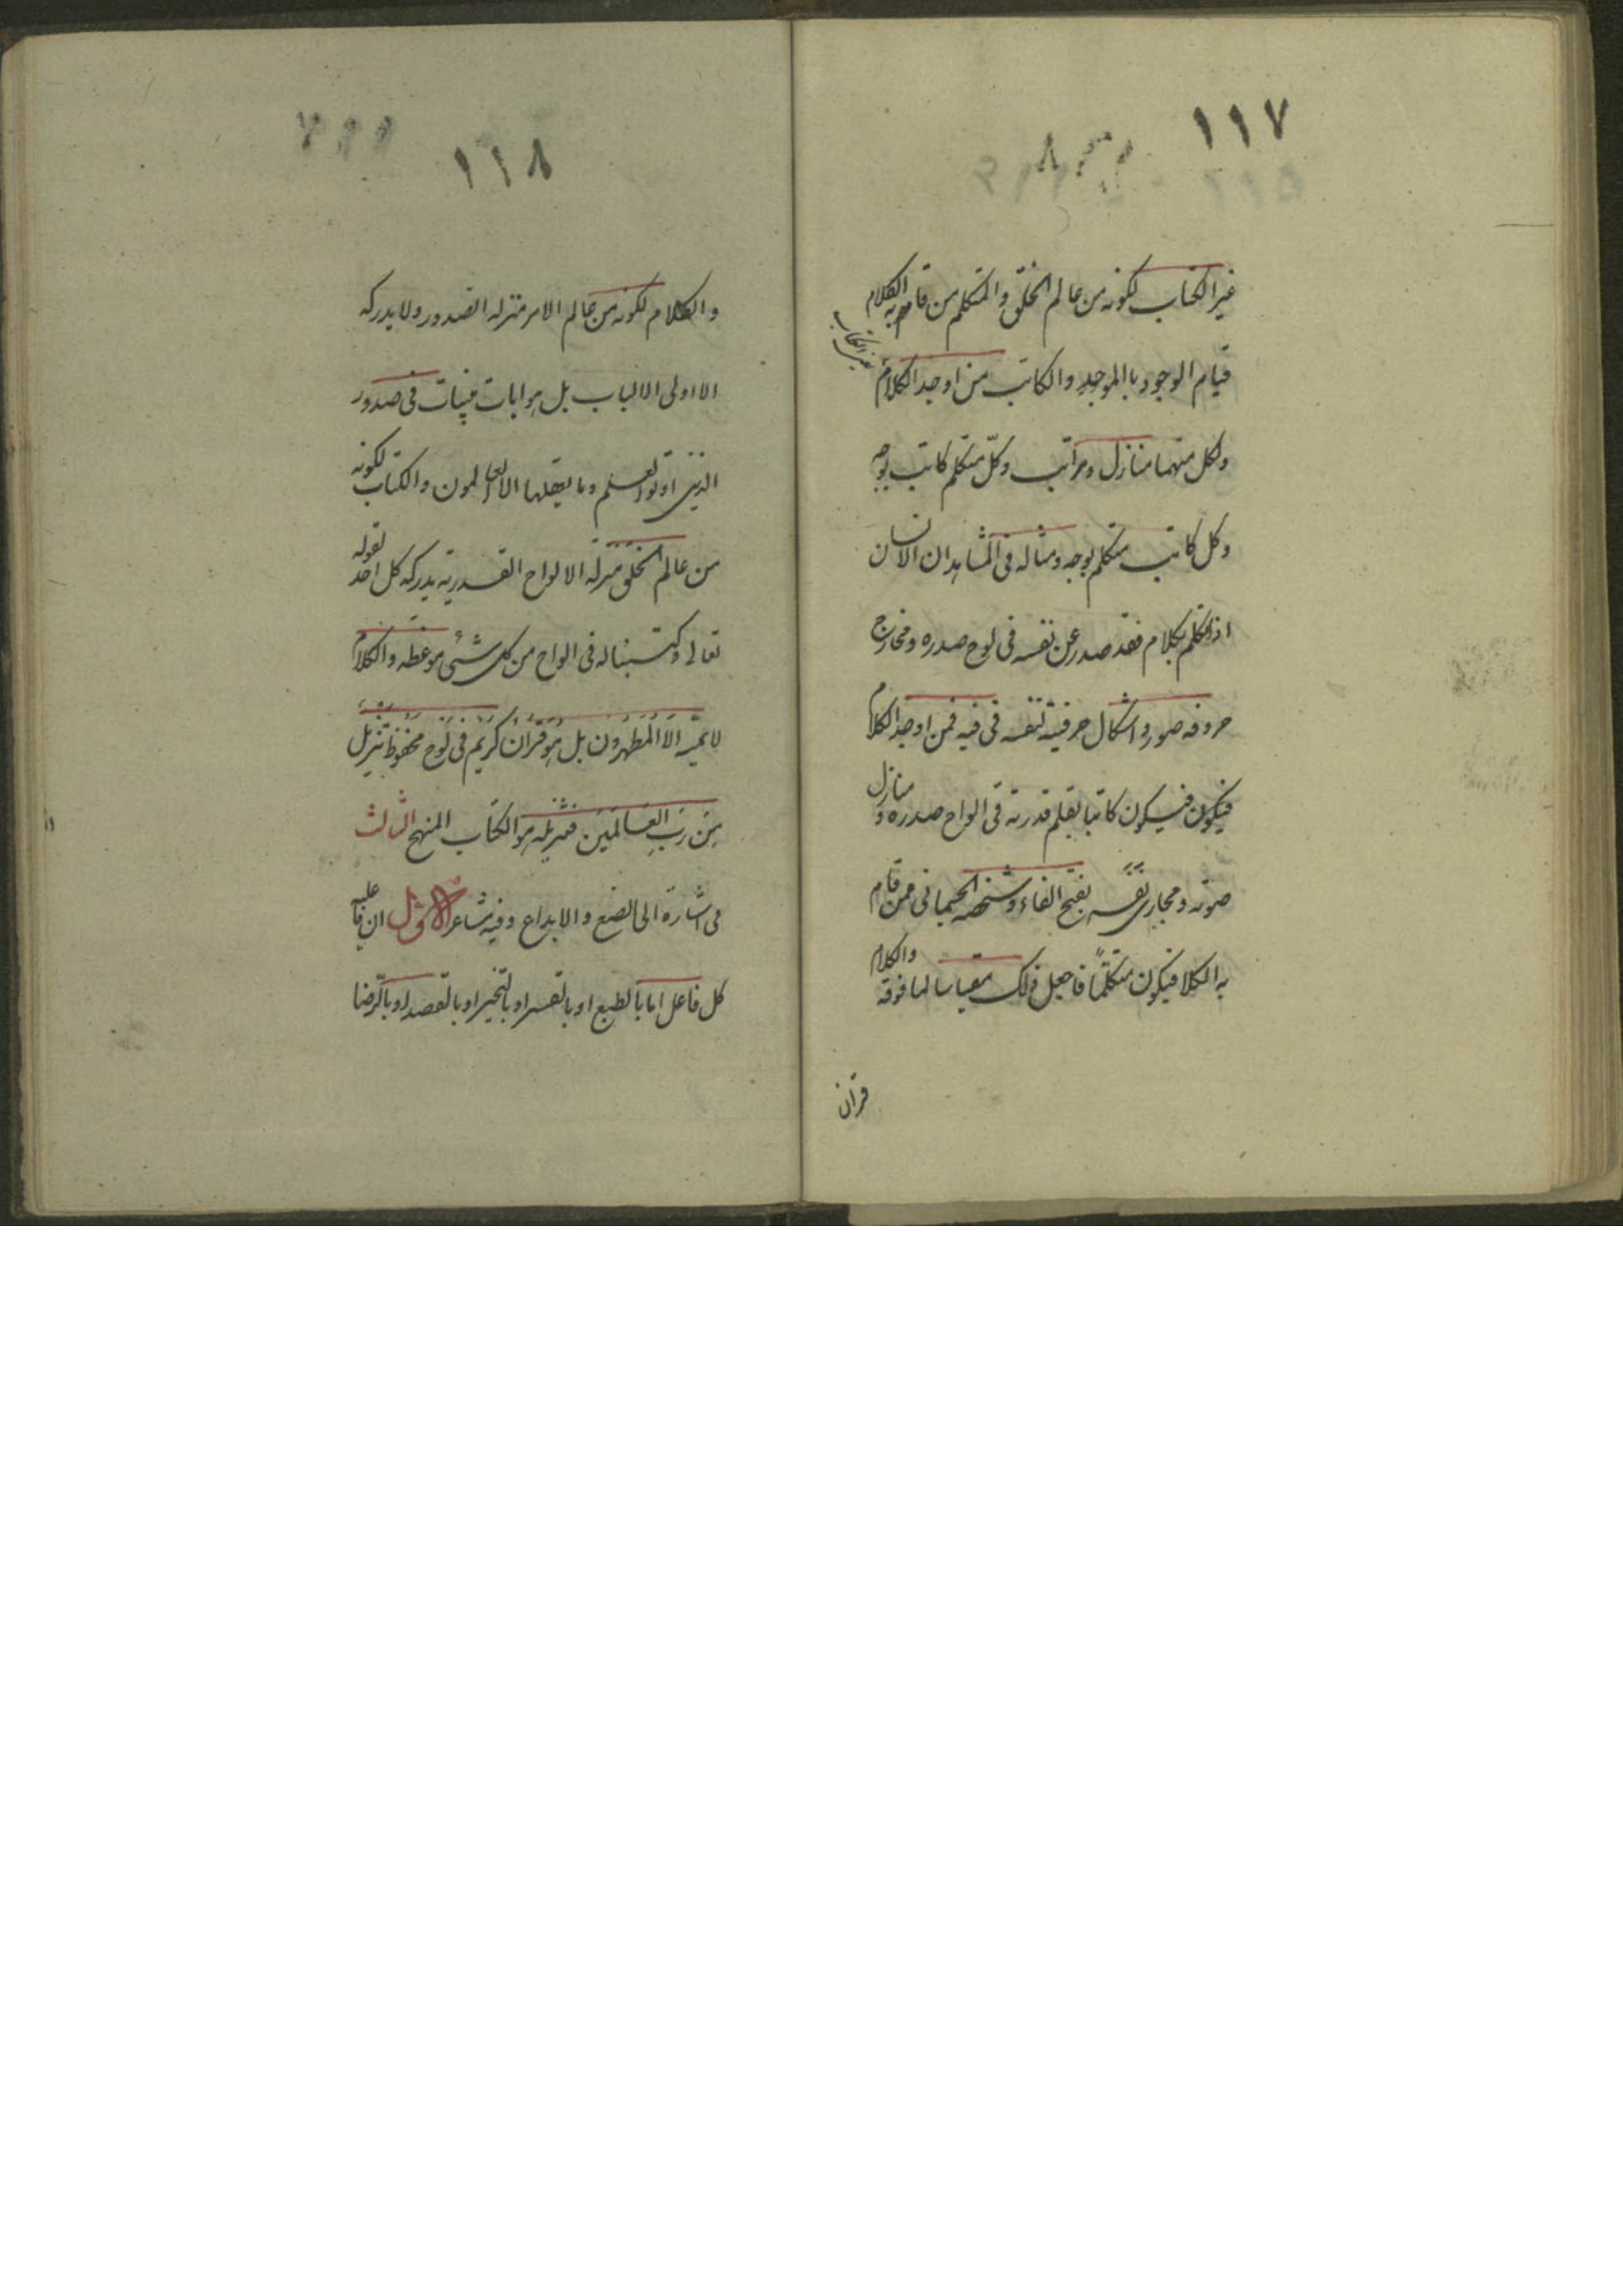 ١١٧
غير الكتاب لكونه من عالم الخلق والمتكلم من قام به الكلام
قيام الوجود بالموجد والكاتب من اوجد الكلام
ولكل منهما منازل ومراتب وكلّ متكلم كاتب بوجه
وكل كاتب متكلم بوجه ومثاله فى المشاهد ان الانسان
اذا تكلم بكلام فقد صدر عن نفسه فى لوح صدره ومخارج
حروفه صور واشكال حرفيه لنفسه فى فيه فمن اوجد الكلام
فيكون فيكون كاتبا بقلم قدرته فى الواح صدره و منازل
صوته ومجارى نَفَسه بفتح الفاء وشخصه الجسمانى ممن قام
به الكلا فيكون متكلّمًا فاجعل ذلك مقياسا لما فوقه والكلام
قرآن
١١٨
والكلام لكونه من عالم الامر منزله الصدور ولا يدركه
الا اولى الالباب بل هو ايات بينات فى صدور
الذين اوتوا لعلم وما يعقلها الا العالمون والكتاب لكونه
من عالم الخلق منزله الالواح القدرية يدركه كل احد لقوله
تعالى وكتبنا له فى الواح من كل شئى موعظه والكلام
لا يمسّه الّا المُطهرون بل هو قرآن كريم فى لوح محفوظ تنزيل
مِن رَبِ العَالَمين فتنزيله هو الكتاب المنهج الثالث
فى اشارة الى الصنع والابداع وفيه مشاعر الاول ان فاعليه
كل فاعل اما بالطبع او بالقسر او بالتخير او بالقصد او بالرّضا